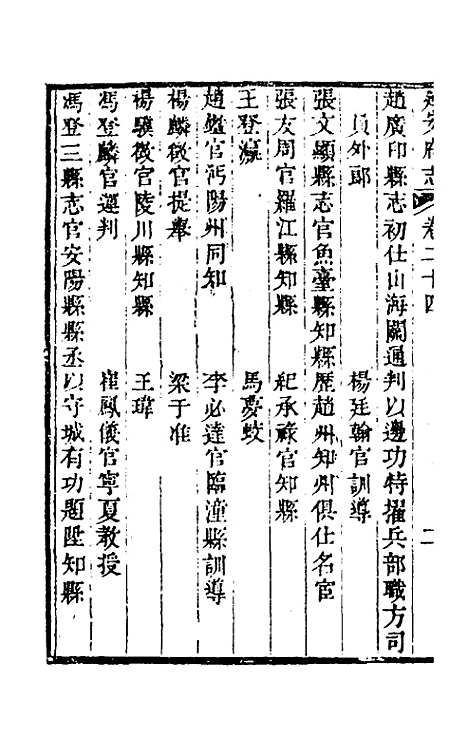 延安府志 卷二十四 二
趙廣印縣志初仕山海關通判以邊功特擢兵部職方司
員外郎 楊廷翰官訓導
張文顯縣志官魚臺縣知縣歷趙州知州俱仕名宦
張友周官羅江縣知縣 紀承祿官知縣
王登瀛 馬夢蛟
趙 官沔陽州同知 李必達官臨潼縣訓導
楊麟徵官提舉 梁于准
楊驥徵官陵川縣知縣 王瑋
馮登麟官運判 崔鳳儀官寧夏教授
馮登三縣志官安陽縣縣丞以守城有功題陞知縣